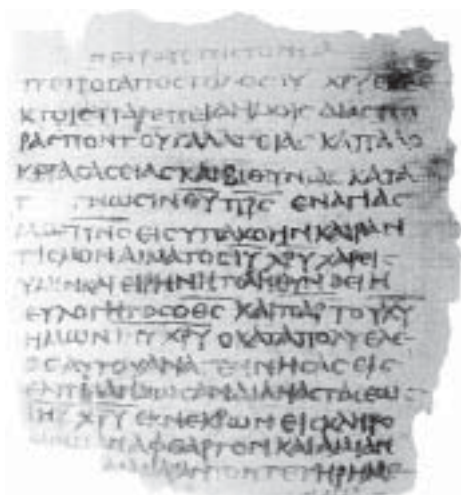 ΠΕΤΡΟΥ ΕΠΙϹΤΟΛΗ Α
ΠΕΤΡΟϹ ΑΠΟϹΤΟΛΟϹ ΙΥ ΧΡΥ ΕΚΛΕ
ΚΤΟΙϹ ΠΑΡΕΠΙΔΗΜΟΙϹ ΔΙΑϹΠΟ
ΡΑϹ ΠΟΝΤΟΥ ΓΑΛΑΤΕΙΑϹ ΚΑΠΠΑΔΟ
ΑϹΕΙΑϹ ΚΑΙ ΒΙΘΥΝΙΑϹ ΚΑΤΑ
ΓΝΩϹΙΝ ΘΥ ΠΡϹ ΕΝ ΑΓΙΑϹ
ΜΩ ΠΝϹ ΕΙϹ ΥΠΑΚΟΗΝ ΚΑΙ ΡΑΝ
ΤΙϹΜΟΝ ΑΙΜΑΤΟϹ ΙΥ ΧΡΥ ΧΑΡΕΙϹ
ΥΜΙΝ ΚΑΙ ΕΙΡΗΝΗ ΠΛΗΘΥΝΘΕΙΗ
ΕΥΛΟΓΗΤΟϹ Ο ΘϹ ΚΑΙ ΠΑΡ ΤΟΥ ΚΥ
ΗΜΩΝ ΙΥ ΧΡΥ Ο ΚΑΤΑ ΠΟΛΥ ΕΛΕ
ΟϹ ΑΥΤΟΥ ΑΝΑΓΕΝΝΗϹΑϹ ΕΙϹ
ΔΙ ΑΝΑϹΤΑϹΕΩϹ
ΙΗΥ ΧΡΥ ΕΚ ΝΕΚΡΩΝ ΕΙϹ ΚΛΗΡΟ
ΑΦΘΑΡΤΟΝ ΚΑΙ ΑΜΙΑΝ
ΑΜΑΡΑΝΤΟΝ ΤΕΤΗΡΗΜΕ